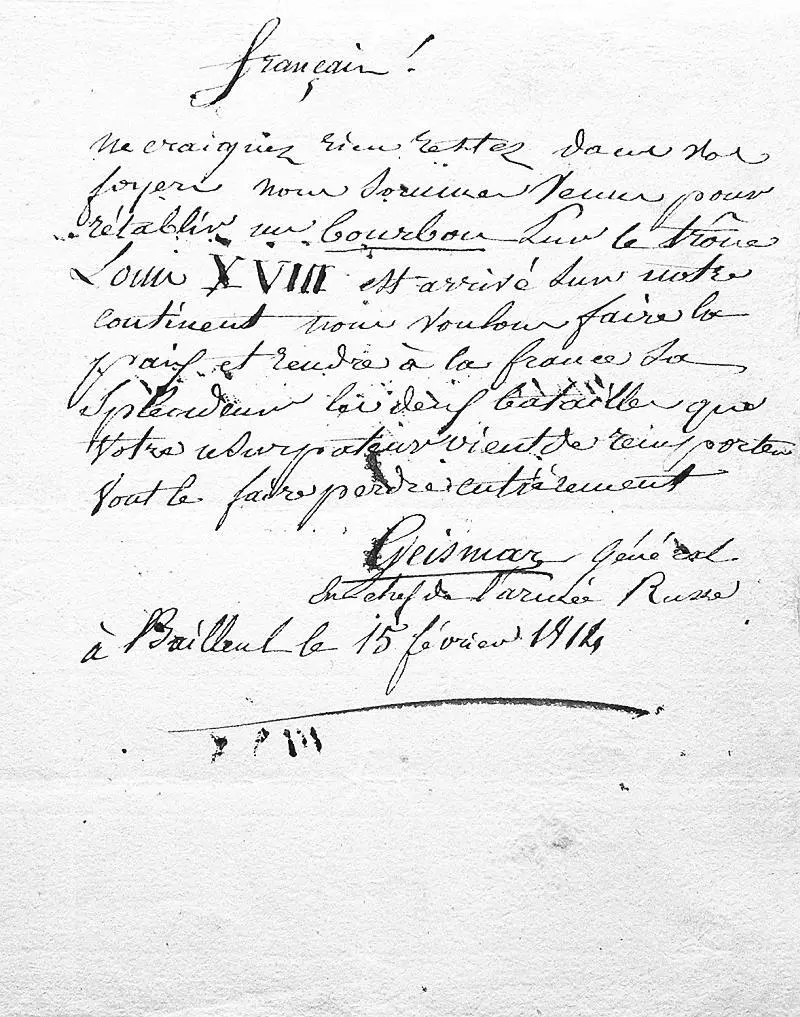 français !
ne craignez rien restez dans vos
foyers nous sommes venus pour
rétablir un Bourbon sur le trône
Louis XVIII est arrivé sur notre
continent nous voulons faire la
paix et rendre à la france sa
splendeur les deux batailles que
votre usurpateur vient de remporter
vont le faire perdre entièrement
Geismar Général
En chef de l'armée Russe
à Bailleul le 15 février 1814